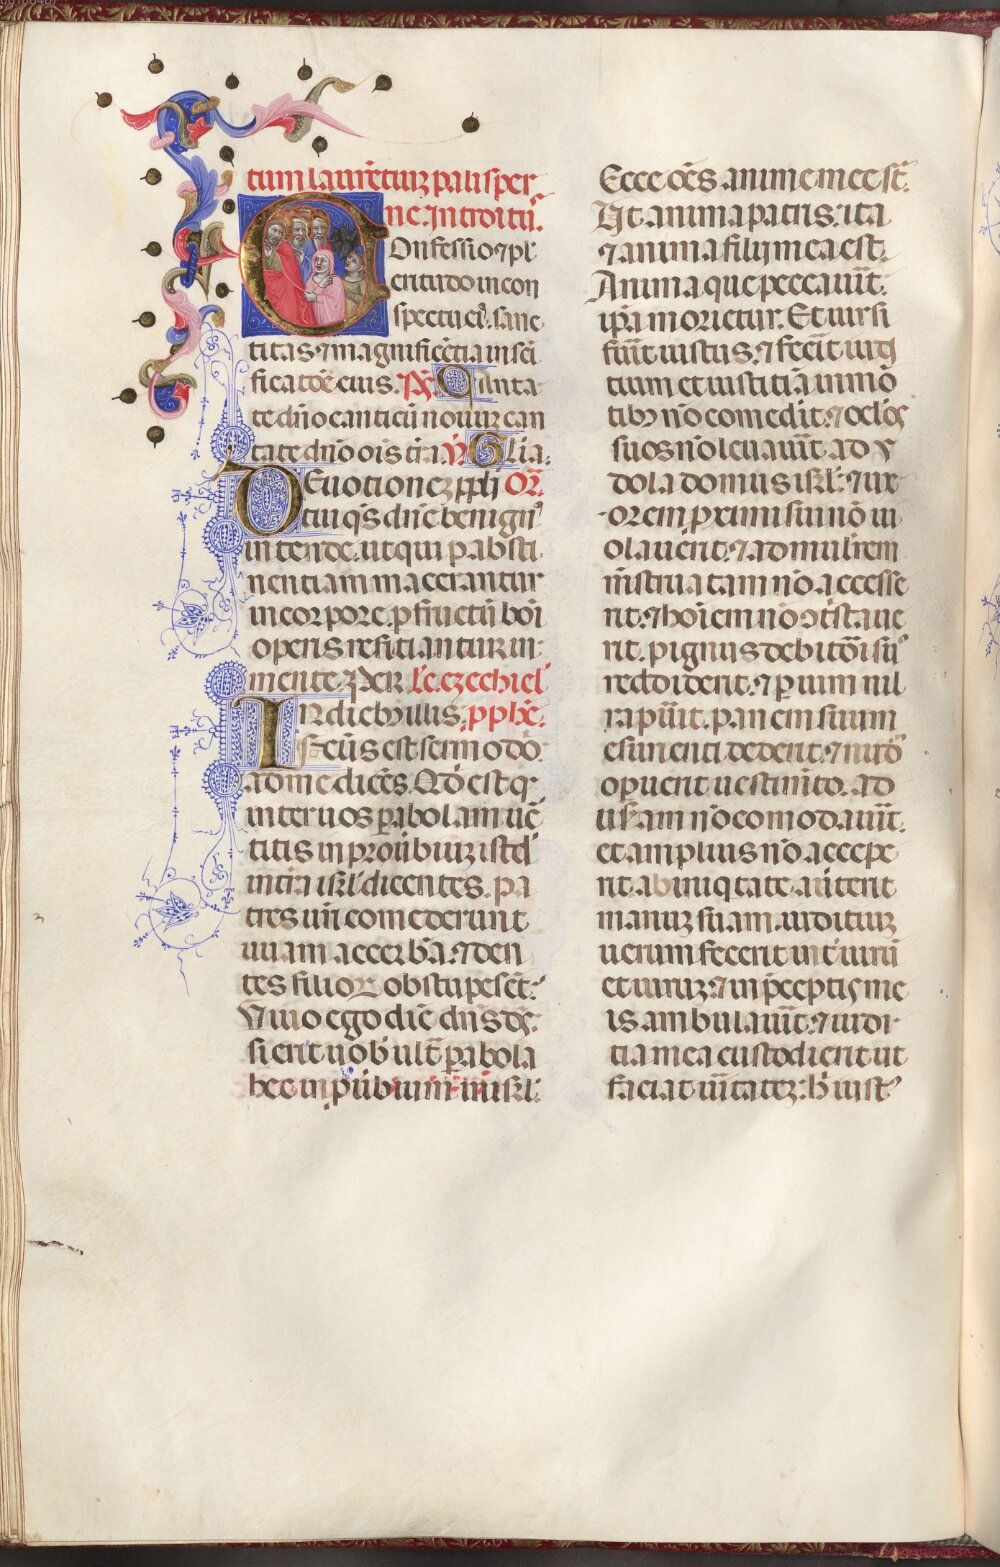 tum laurētiuꝫ palisper
ne. Introitū.
COnfessio ⁊ pl
critudo in con
spectu eiꝰ. sanc
titas ⁊ magnificētia in sci
ficatōe eius. P̄s. Canta
te dn̄o canticū nouuꝫ can
tate dn̄o ois tr̄a. V̄. Gl̄ia.
DEuotioneꝫ pp̄li Or̄.
tui qs̄ dn̄e benignꝰ
intende. ut qui ꝑ absti
nentiam macerantur
in corpore. ꝑ fructū boni
operis reficiantur in
mente. ꝫ Per le. ezechiel
IN diebꝫ illis. pph̄e.
Fcūs est sermo dn̄i
ad me dicēs. Qd̄ est ꝙ
inter uos parabolam uer̄
titis in prouībiuꝫ istd̄
in tr̄a isrl̄ dicentes. pa
tres ur̄i comederunt
uuam accerbā. ⁊ den
tes filioꝝ obstupescēt.
Viuo ego dic̄ dn̄s ds̄.
si erit uob̄ ult̄ parabola
hec in pūbium in isrl̄.
Ecce oēs anime mee st̄.
Ut anima patris. ita
⁊ anima filij mea est.
Anima que peccauīt.
ip̄a morietur. Et uir si
fuīt iustus. ⁊ fecīt iudi
cium et iustitiā in mō
tibꝫ nō comedīt. ⁊ oclōs
suos nō leuauīt ad y
dola domus isrl̄. ⁊ ux
orem proximi sui nō ui
olauerit. ⁊ ad mulīrem
mēstruatam nō accesse
rit. ⁊ hoīem nō ↄtristaue
rit. pignus debitōri suo
reddiderit. ⁊ ꝑ uim nil
rapuīt. panem suum
esurienti dederit. ⁊ nudū
opuerit uestimēto. ad
usuram nō comodauīt.
et amplius nō accepe
rit. ab iniqtate auerterit
manuꝫ suam. iuditiuꝫ
uerum fecerit int̄ uirū
et uiruꝫ. ⁊ in p̄ceptis me
is ambulauīt. ⁊ iudi
tia mea custodierit ut
faciat uītateꝫ. h̄ iustꝰ